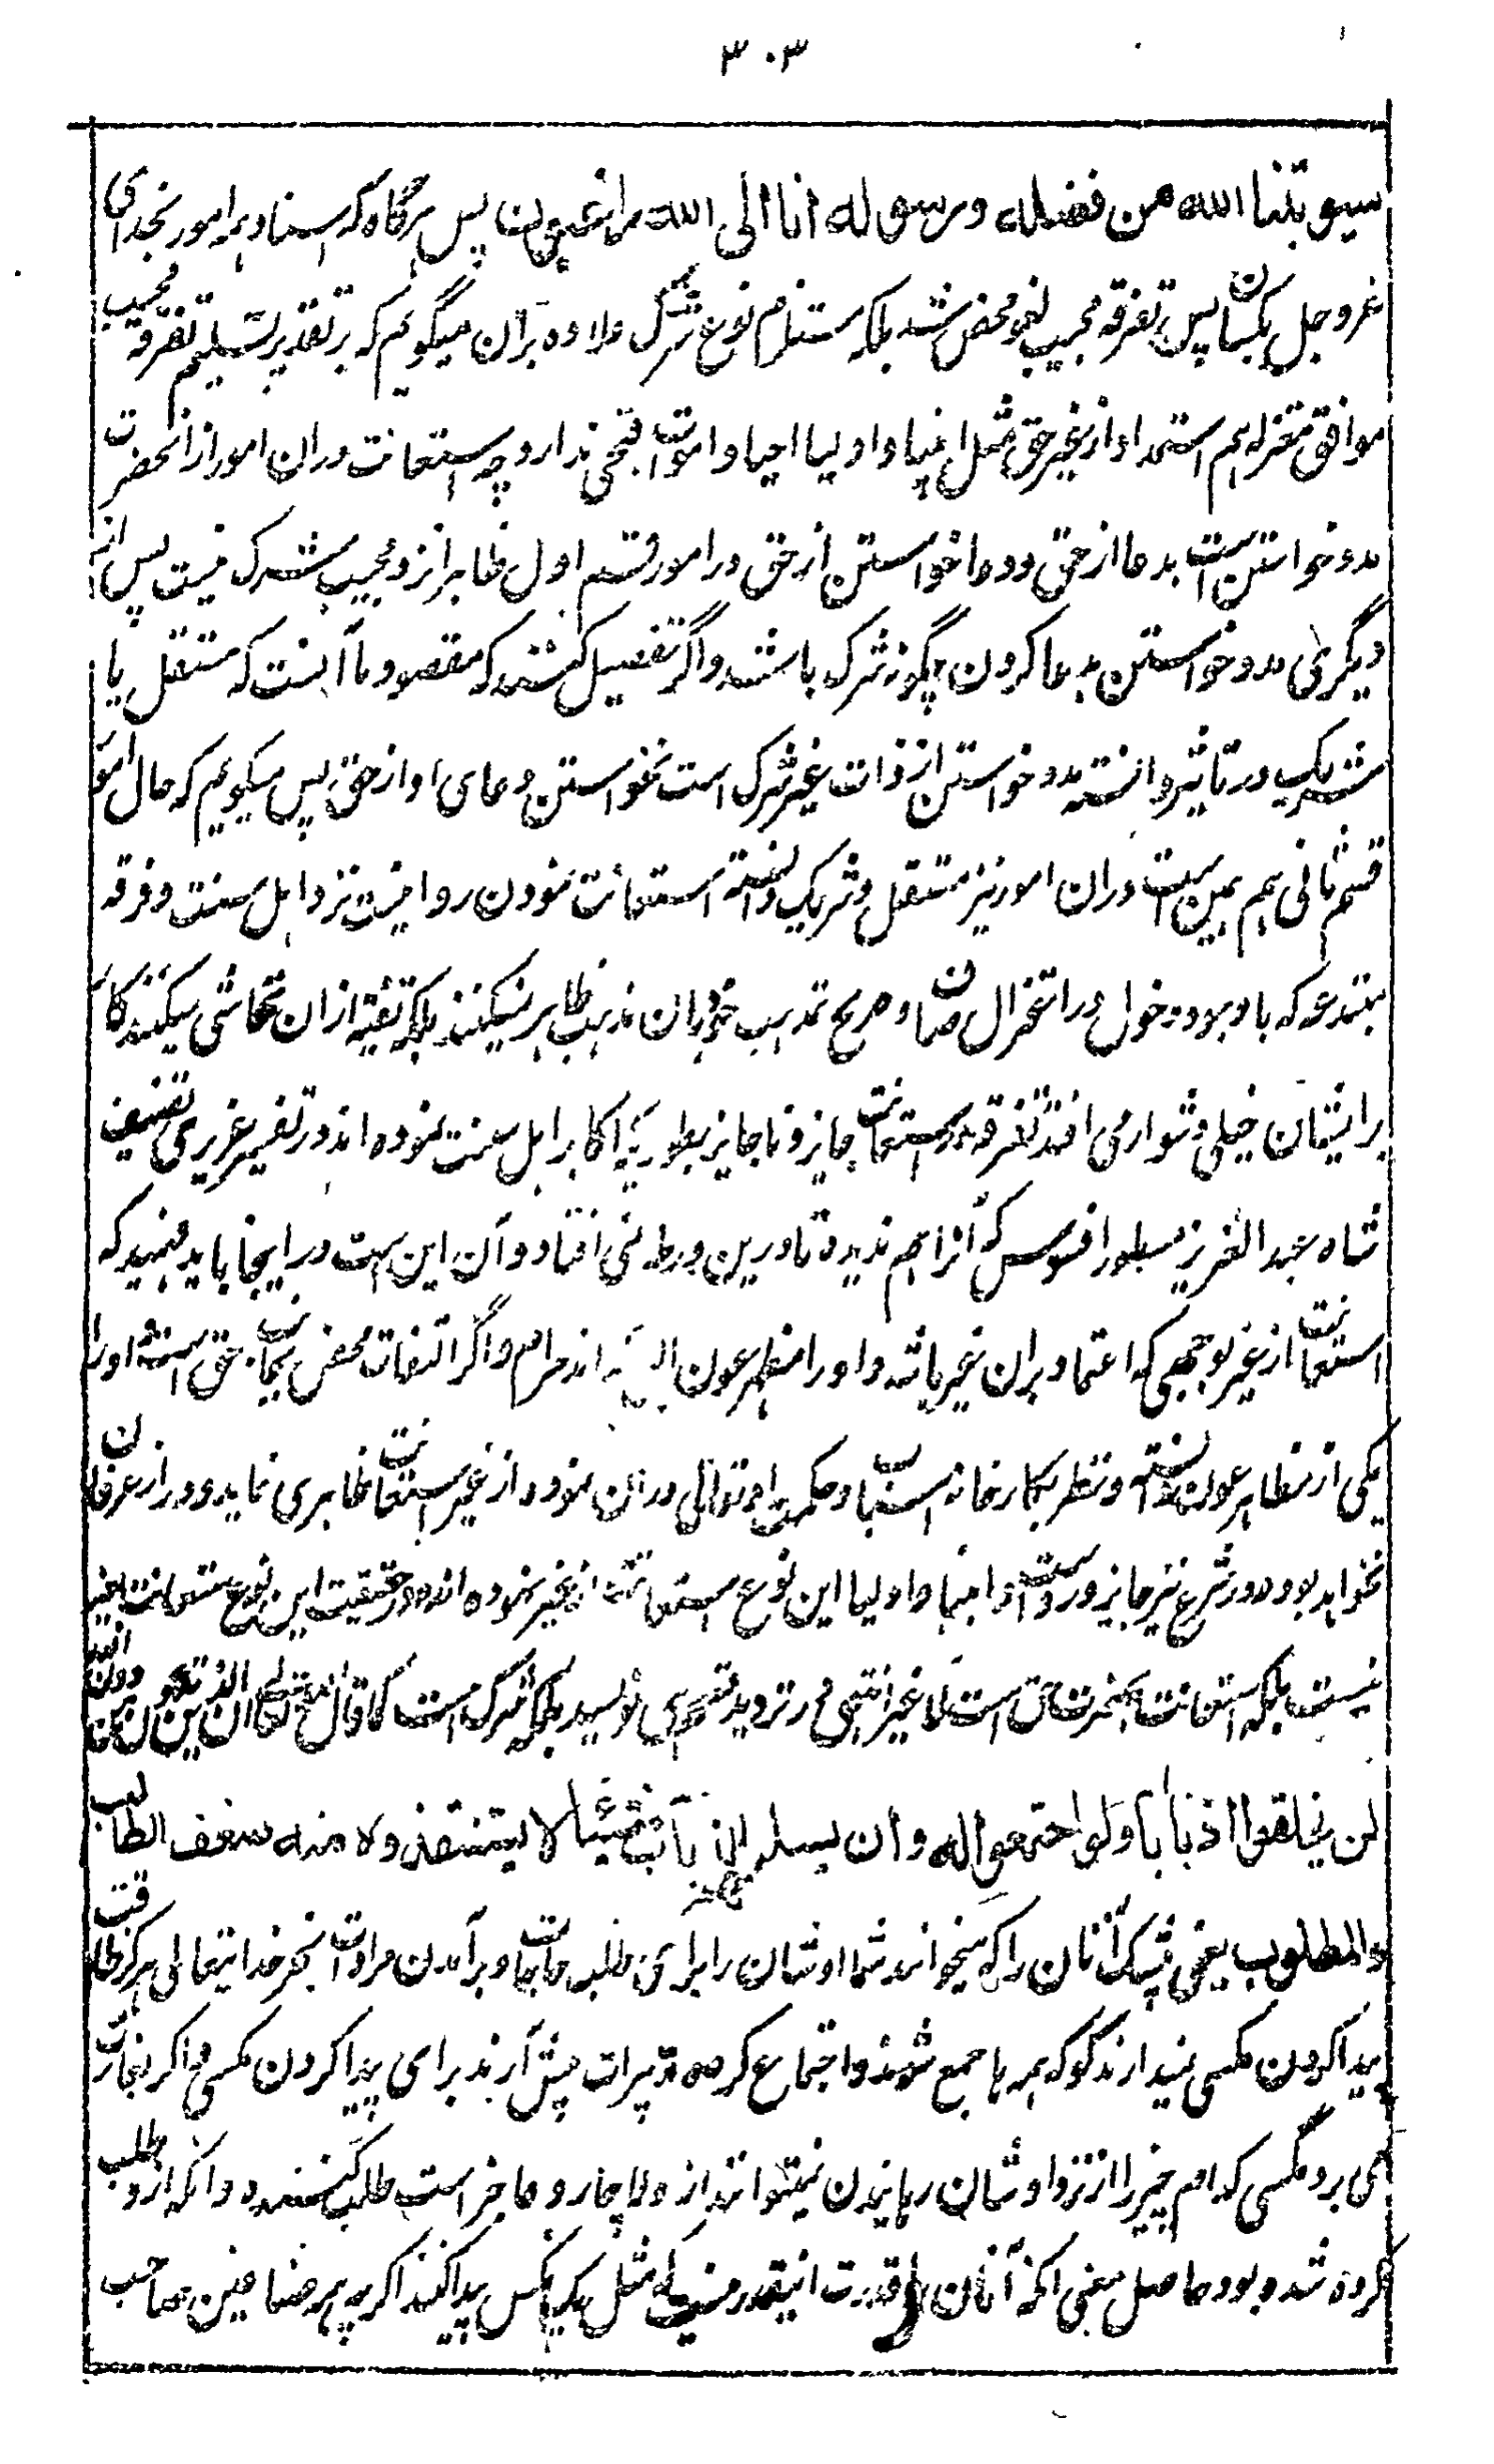 ۳۰۳
سیوتینا الله من فضله ورسوله انا الی الله راغبون پس هرگاه که اسناد همه امور بخدای
عزوجل یکسان پس تفرقه مجیب لغو محض شد بلکه مستلزم نوع شرک علاوه بران میگویم که بر تقدیر تسلیم تفرقه مجیب
موافق معتزله هم استمداد از غیر حق مثل انبیا و اولیا احیا و اموات قبحی ندارد چه استعانت دران امور از انحضرت
مدد خواستن است بدعا از حق و دعا خواستن از حق در امور قسم اول ظاهرا نزد مجیب شرک نیست پس از
دیگری مدد خواستن بدعا کردن چگونه شرک باشد و اگر تفصیل کنند که مقصود ما آنست که مستقل یا
شریک در تاثیر دانسته مدد خواستن از ذات غیر شرک است نخواستن دعای او از حق پس میگویم که حال امور
قسم ثانی هم همین است دران امور نیز مستقل و شریک دانسته استعانت نمودن روا نیست نزد اهل سنت و فرقه
مبتدعه که با وجود دخول در اعتزال صاف و صریح تمذهب خود بان مذهب ظاهر نمیکنند بلکه تقیة ازان تحاشی میکنند کار
برایشان خیلی دشوار می افتد تفرقه در استعانت جایز و ناجایز بطوریکه اکابر اهل سنت نموده اند در تفسیر عزیزی تصنیف
شاه عبدالعزیز مسطور افسوس که آنرا هم ندید تا درین ورطه نمی افتاد و آن این است در اینجا باید فهمید که
استعانت از غیر بوجهی که اعتماد بران غیر باشد و او را مظهر عون الهی نداند حرام و اگر التفات محض بجانب حق است و او را
یکی از مظاهر عون دانسته و نظر بکارخانه اسباب و حکمت او تعالی دران نموده از غیر استعانت ظاهری نماید دور از عرفان
نخواهد بود و در شرع نیز جایز و رواست و انبیا و اولیا این نوع استعانت از غیر نموده اند و در حقیقت این نوع استعانت بغیر
نیست بلکه استعانت بحضرت حق است لا غیر انتهی و در تردید قسم می نویسد بلکه شرک است کما قال الله تعالی ان الذین تدعون من دون الله
لن یخلقوا ذبابا ولو اجتمعوا له وان یسلبهم الذباب شیئا لا یستنقذوه منه ضعف الطالب
والمطلوب یعنی بیشک آنان را که میخوانید شما اوشان را برای طلب حاجات و برآمدن مرادات بجز خدایتعالی هرگز طاقت
پیدا کردن مگسی نمیدارند گو که همه ها جمع شوند و اجتماع کرده تدبیرات پیش آرند برای پیدا کردن مگسی و اگر بغارت
می برد مگسی کدام چیز را از نزد اوشان رهانیدن نمیتوانند از و لاچار و عاجز است طلب کننده و آنکه ازو طلب
کرده شد و بود حاصل معنی آنکه آنان را قدرت اینقدر نیست که مثل یک مگس پیدا کنند اگرچه همه مضامین صاحب